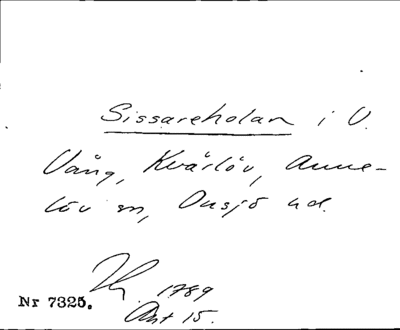 Sissareholan i V.
Vång, Kvärlöv, Anne-
löv sn, Onsjö hd.
1789
Nr 7325. Akt 15.